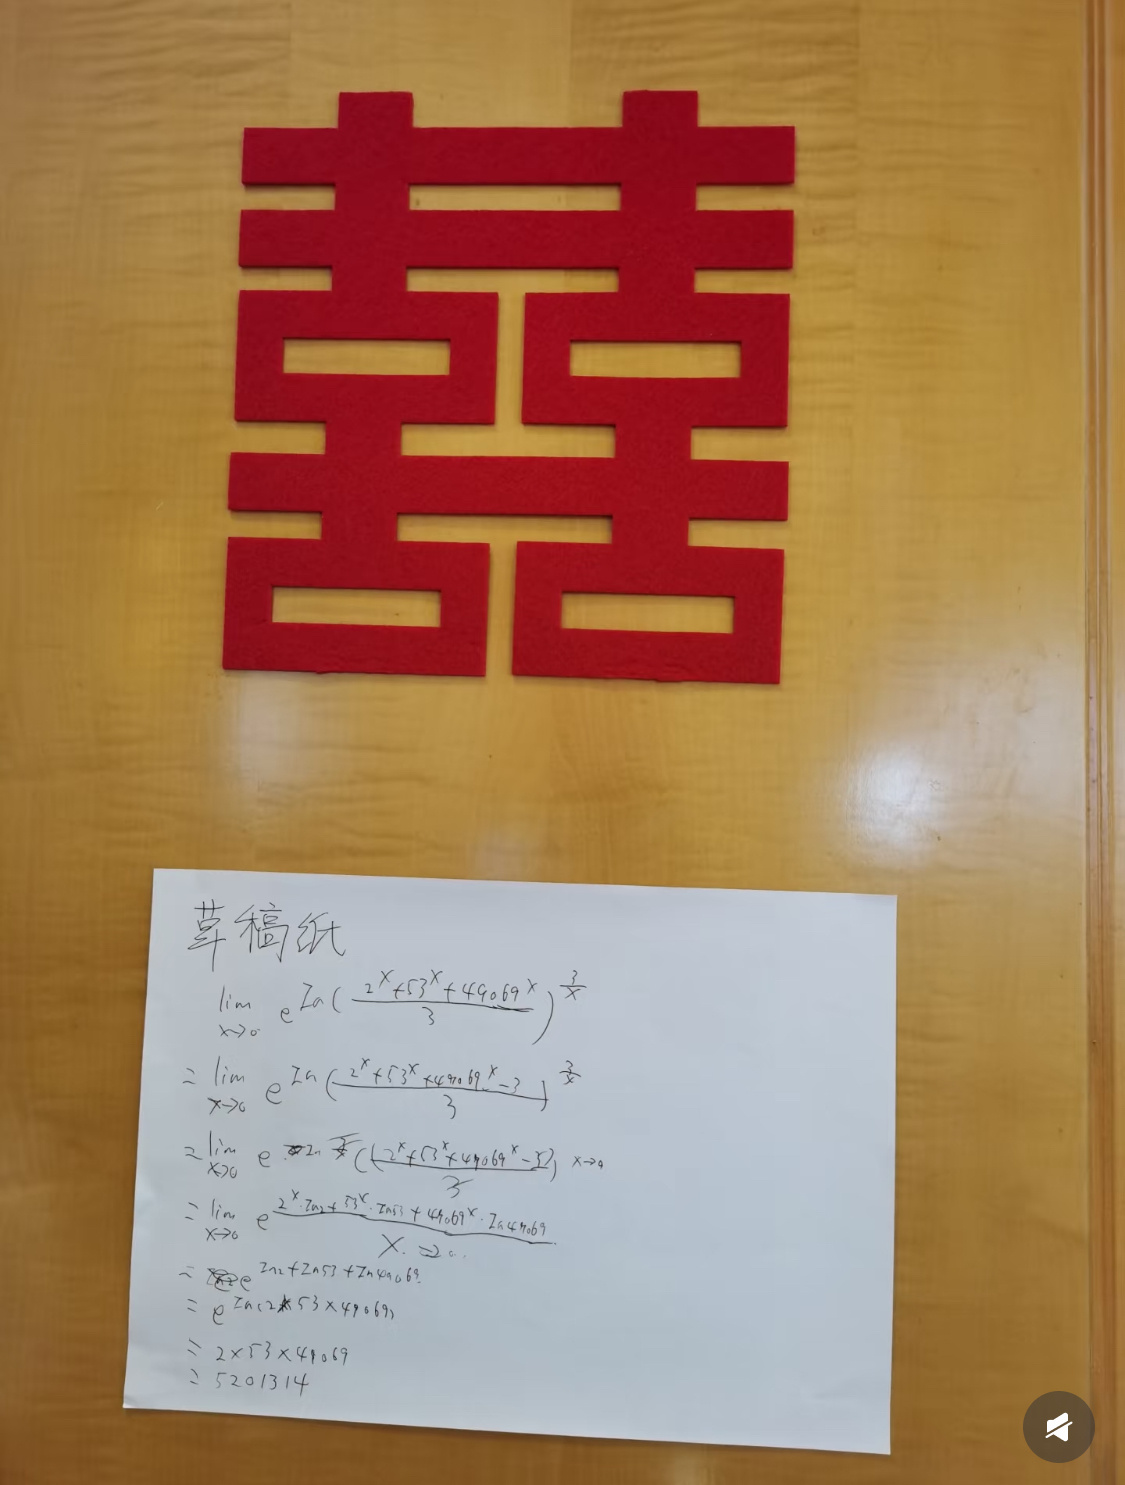 囍
草稿纸
lim x→0 e^ln((2^x+53^x+49069^x)/3)^(3/x)
= lim x→0 e^ln((2^x+53^x+49069^x-3)/3)^(3/x)
= lim x→0 e ln ((2^x+53^x+49069^x-3)/3) x→0
= lim x→0 e^(2^x·ln2+53^x·ln53+49069^x·ln49069)/x
= e^ln2+ln53+ln49069
= e^ln(2×53×49069)
= 2×53×49069
= 5201314